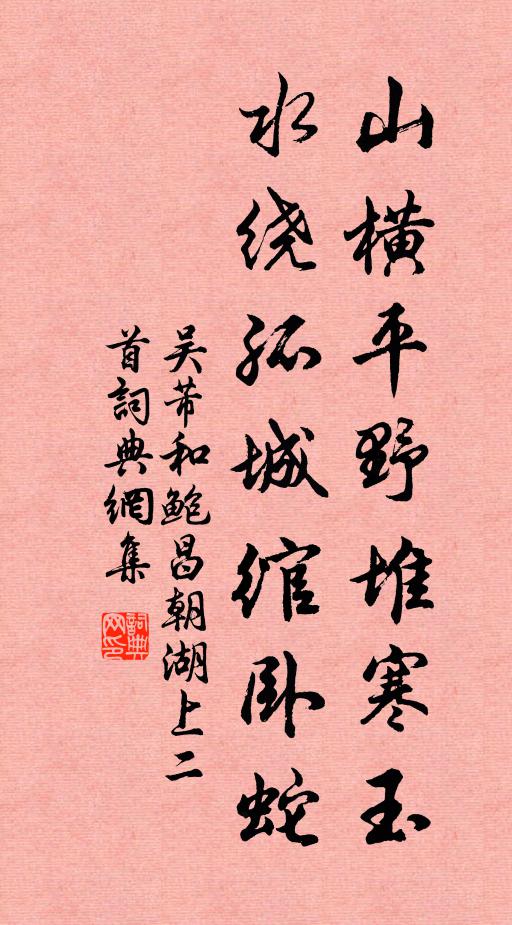 山橫平野堆寒玉
水绕孤城綰卧蛇
吴芾和鲍昌朝湖上二
首詞典網集
詞典
网印